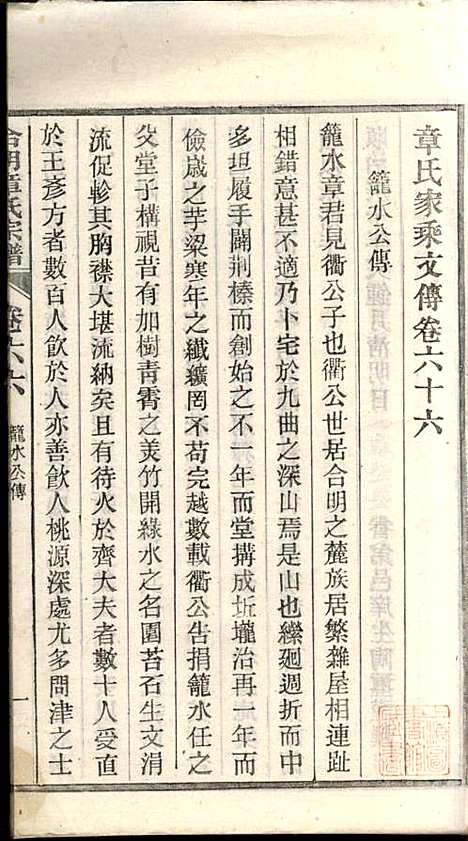 章氏家乘文傳卷六十六
籠水公傳
籠水章君見衢公子也衢公世居合明之麓族居繁雜屋相連趾
相錯意甚不適乃卜宅於九曲之深山焉是山也纍廻週折而中
多坦履手闢荆榛而創始之不一年而堂搆成坵壠治再一年而
儉歲之芋粱寒年之纖纊罔不苟完越數載衢公告捐籠水任之
父堂子構視昔有加樹青霄之美竹開綠水之名園苔石生文涓
流促軫其胸襟大堪流納矣且有待火於齊大夫者數十人受直
於王彥方者數百人飲於人亦善飲人桃源深處尤多問津之士
合明章氏宗譜
卷六六
籠水公傳
一